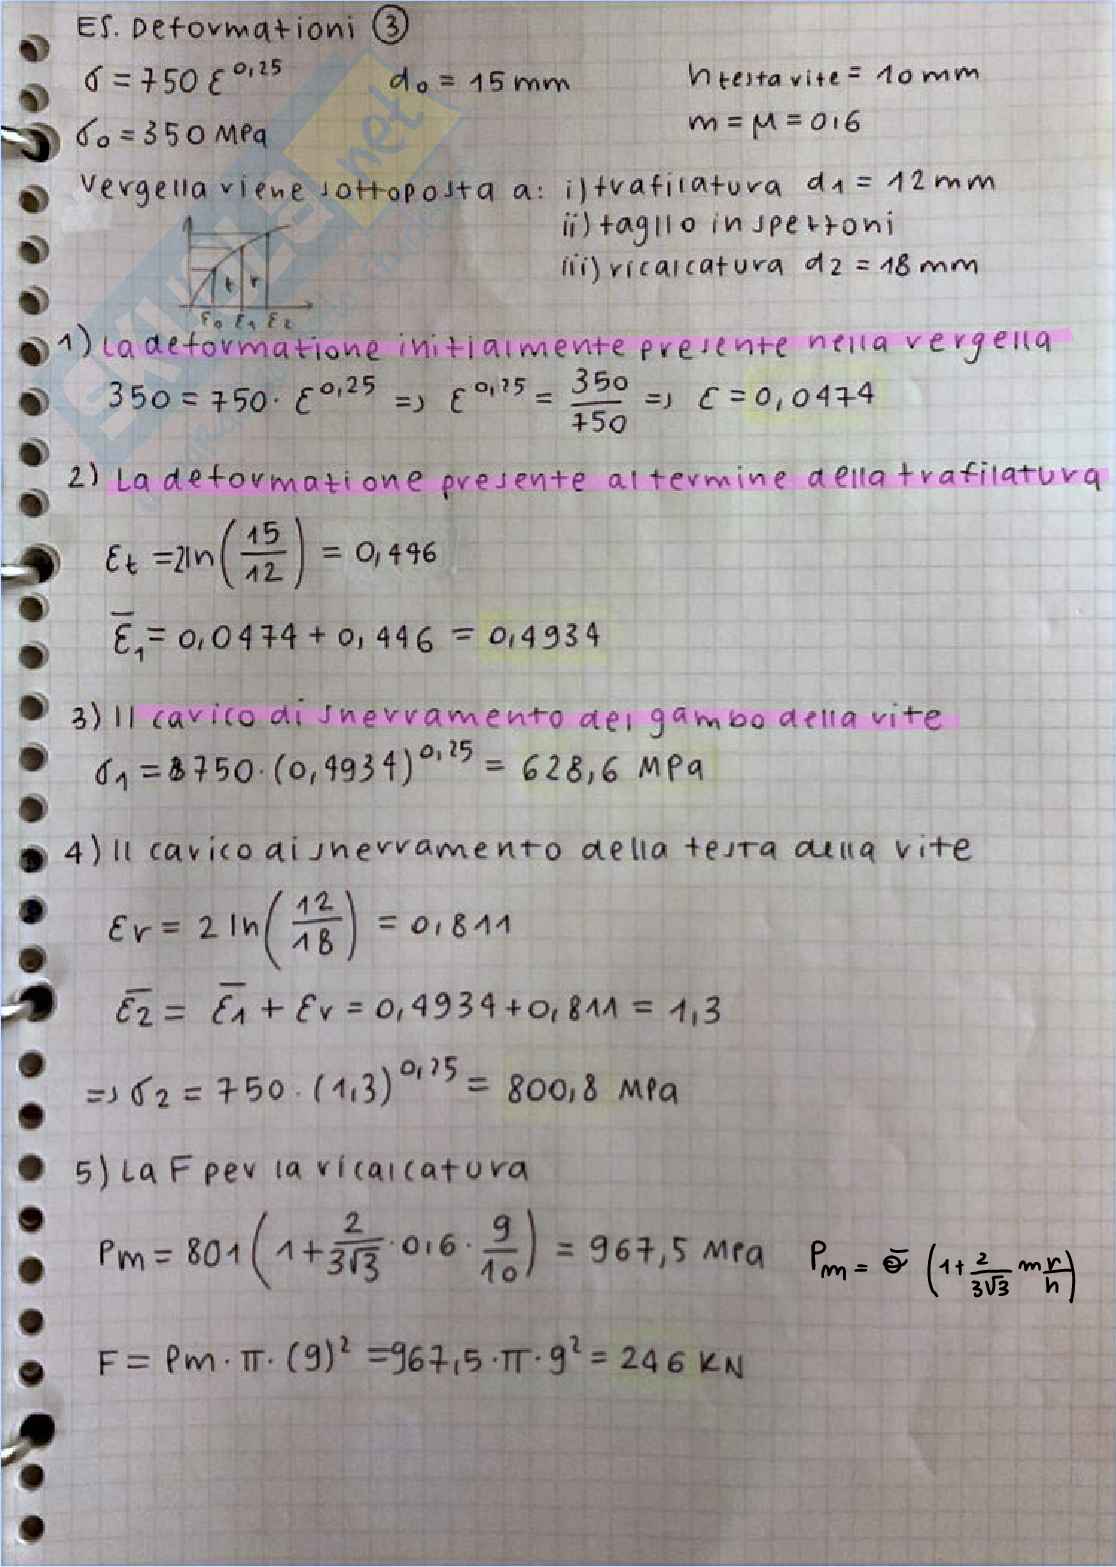 ES. Deformazioni ③
σ = 750 ε^0,25    d0 = 15 mm    h testa vite = 10 mm
σ0 = 350 MPa    m = μ = 0,6
Vergella viene sottoposta a: i) trafilatura d1 = 12 mm
ii) taglio in spezzoni
iii) ricalcatura d2 = 18 mm
t r
ε0 ε1 ε2
1) La deformazione inizialmente presente nella vergella
350 = 750 · ε^0,25 => ε^0,25 = 350/750 => ε = 0,0474
2) La deformazione presente al termine della trafilatura
εt = 2ln(15/12) = 0,446
ε̄1 = 0,0474 + 0,446 = 0,4934
3) Il carico di snervamento del gambo della vite
σ1 = 750 · (0,4934)^0,25 = 628,6 MPa
4) Il carico di snervamento della testa della vite
εr = 2 ln(12/18) = 0,811
ε̄2 = ε̄1 + εr = 0,4934 + 0,811 = 1,3
=> σ2 = 750 · (1,3)^0,25 = 800,8 MPa
5) La F per la ricalcatura
Pm = 801 (1 + 2/3√3 · 0,6 · 9/10) = 967,5 MPa    Pm = σ̄ (1 + 2/3√3 m r/h)
F = Pm · π · (9)² = 967,5 · π · 9² = 246 KN
SKUOLA.net